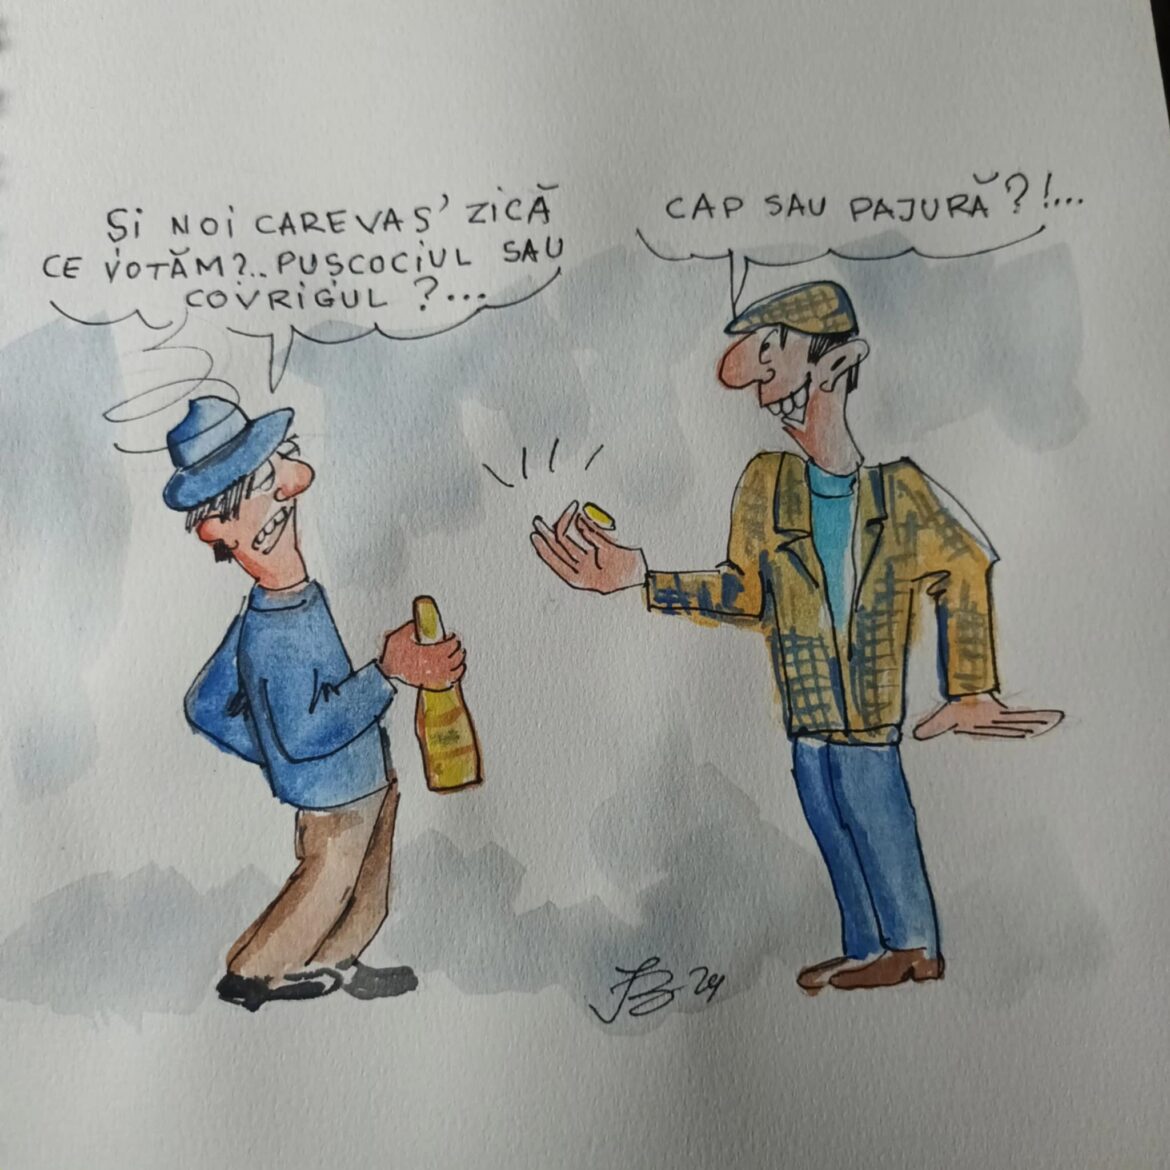 ȘI NOI CAREVAȘ' ZICĂ
CE VOTĂM?.. PUȘCOCIUL SAU
COVRIGUL ?...
CAP SAU PAJURĂ?!...
24